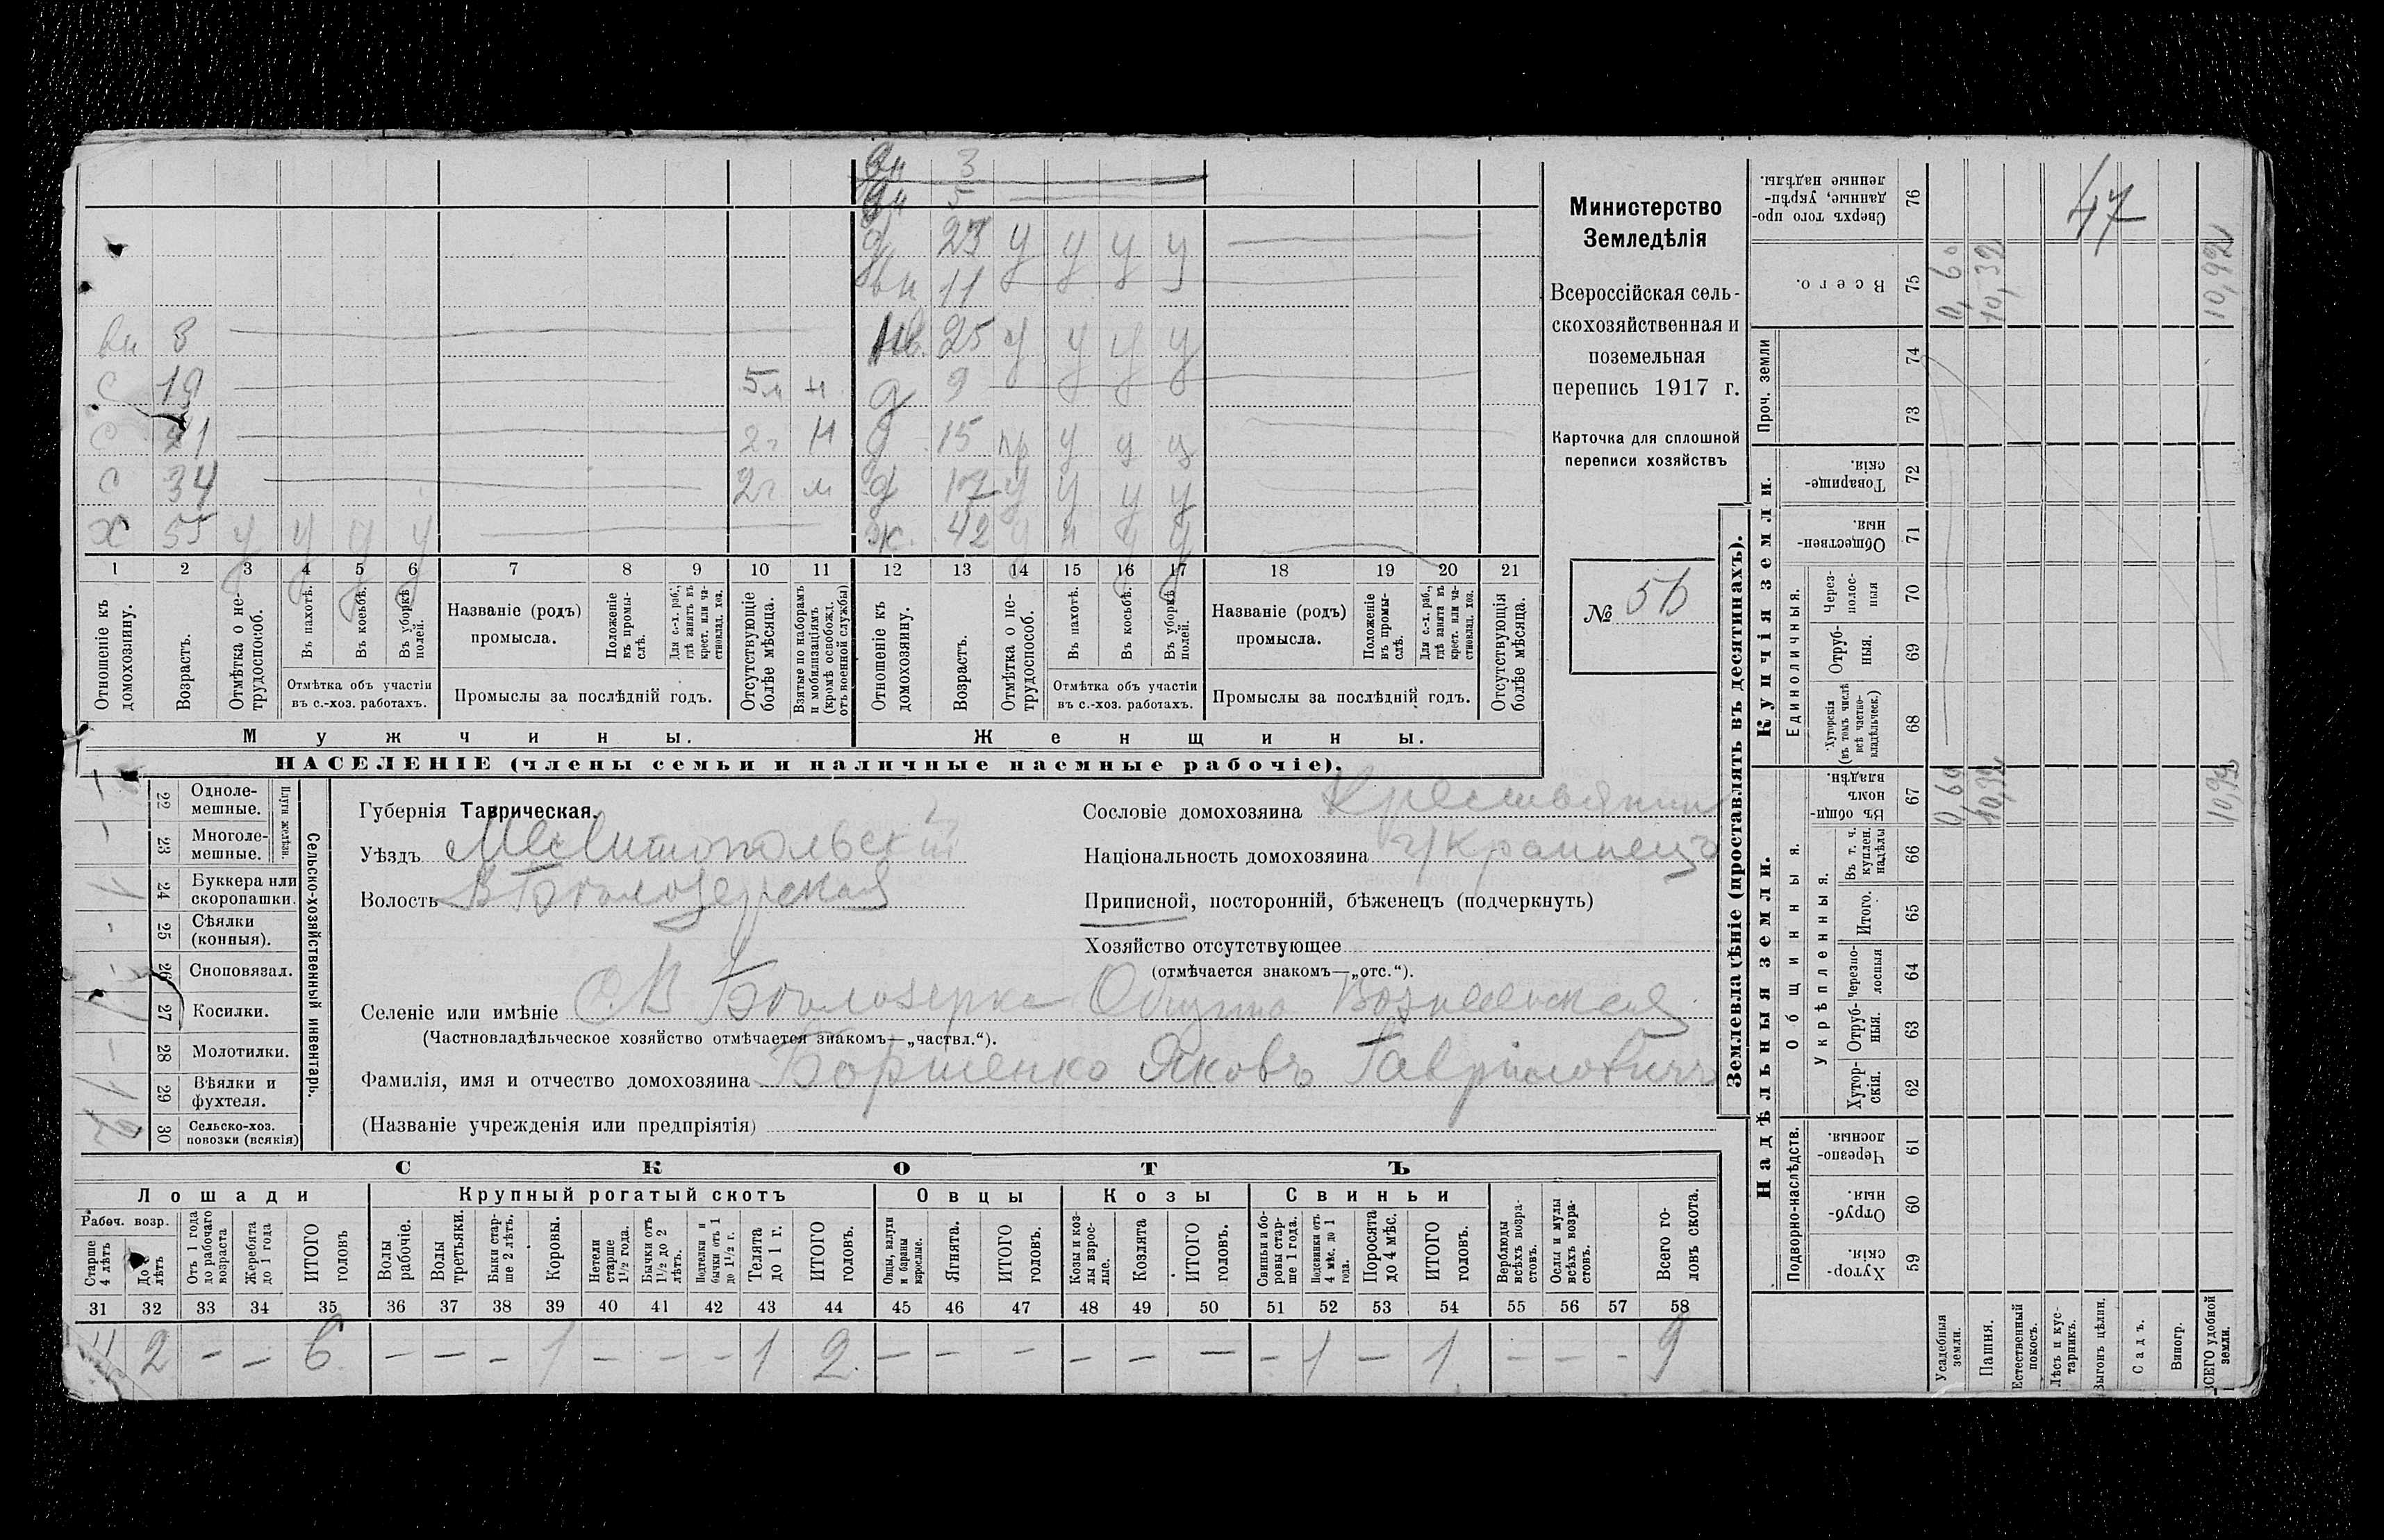 вн 3
вн 5
д 23 у у у у
вн 11
вн 8
нв. 25 у у у у
с 19 5м н
д 9
с 21 2г н
д 15 пр у у у
с 34 2г н
д 17 у у у у
х 55 у у у у
ж. 42 у н у у
1 2 3 4 5 6 7 8 9 10 11 12 13 14 15 16 17 18 19 20 21
Отношеніе къ домохозяину.
Возрастъ.
Отмѣтка о не-трудоспособ.
Въ пахотѣ.
Въ косьбѣ.
Въ уборкѣ полей.
Отмѣтка объ участіи
въ с.-хоз. работахъ.
Названіе (родъ)
промысла.
Положеніе въ промы-слѣ.
Для с.-х. раб., гдѣ занятъ въ крест. или ча-стновлад. хоз.
Промыслы за послѣдній годъ.
Отсутствующіе болѣе мѣсяца.
Взятые по наборамъ и мобилизаціямъ (кромѣ освобожд. отъ военной службы)
Отношеніе къ домохозяину.
Возрастъ.
Отмѣтка о не-трудоспособ.
Въ пахотѣ.
Въ косьбѣ.
Въ уборкѣ полей.
Отмѣтка объ участіи
въ с.-хоз. работахъ.
Названіе (родъ)
промысла.
Положеніе въ промы-слѣ.
Для с.-х. раб., гдѣ занята въ крест. или ча-стновлад. хоз.
Промыслы за послѣдній годъ.
Отсутствующія болѣе мѣсяца.
Мужчины.
Женщины.
НАСЕЛЕНІЕ (члены семьи и наличные наемные рабочіе).
Министерство
Земледѣлія
Всероссійская сель-
скохозяйственная и
поземельная
перепись 1917 г.
Карточка для сплошной
переписи хозяйствъ
№ 56
22 Однолемешные.
23 Многоле-мешные.
Плуги желѣзн.
24 Буккера или скоропашки.
25 Сѣялки (конныя).
26 Сноповязал.
27 Косилки.
28 Молотилки.
29 Вѣялки и фухтеля.
30 Сельско-хоз. повозки (всякія)
Сельско-хозяйственный инвентарь.
Губернія Таврическая.
Уѣздъ Мелитопольскій
Волость В Бѣлозерская
Сословіе домохозяина Крестьянин
Національность домохозяина Украинецъ
Приписной, посторонній, бѣженецъ (подчеркнуть)
Хозяйство отсутствующее
(отмѣчается знакомъ—„отс.“).
Селеніе или имѣніе С. В Бѣлозерка Общин Вознесенская
(Частновладѣльческое хозяйство отмѣчается знакомъ—„частвл.“).
Фамилія, имя и отчество домохозяина Борщенко Яковъ Гавріиловичъ
(Названіе учрежденія или предпріятія)
СКОТЪ
Лошади
Крупный рогатый скотъ
Овцы
Козы
Свиньи
Рабоч. возр.
Старше 4 лѣтъ
До 4 лѣтъ
Отъ 1 года до рабочаго возраста
Жеребята до 1 года
ИТОГО головъ
Волы рабочіе.
Волы третьяки.
Быки стар-ше 2 лѣтъ.
Коровы.
Нетели старше 1½ года.
Бычки отъ 1½ до 2 лѣтъ.
Подтелки и бычки отъ 1 до 1½ г.
Телята до 1 г.
ИТОГО головъ.
Овцы, валухи и бараны взрослые.
Ягнята.
ИТОГО головъ.
Козы и коз-лы взрос-лые.
Козлята
ИТОГО головъ.
Свиньи и бо-ровы стар-ше 1 года.
Подсвинки отъ 4 мѣс. до 1 года.
Поросята до 4 мѣс.
ИТОГО головъ.
Верблюды всѣхъ возра-стовъ.
Ослы и мулы всѣхъ возра-стовъ.
Всего го-ловъ скота.
31 32 33 34 35 36 37 38 39 40 41 42 43 44 45 46 47 48 49 50 51 52 53 54 55 56 57 58
4 2 – – 6 – – – 1 – – – 1 2. – – – – – – – 1 – 1 – – – 9
Землевладѣніе (проставлять въ десятинахъ).
Купчія земли.
Надѣльныя земли.
Сверхъ того про-данные, укрѣп-ленные надѣлы. 76
47
Всего. 75 0,60 10,32 10,92
Проч. земли 74 73
Товарище-скія. 72
Обществен-ныя. 71
Единоличныя.
Черезполос-ныя 70
Отруб-ныя. 69
Хуторскія (въ томъ числѣ всѣ частно-владѣльческ.) 68
Въ общин-номъ владѣн. 67 0,60 10,32 10,92
Общинныя.
Укрѣпленныя.
Въ т. ч. куплен. надѣлы 66
Итого. 65
Черезпо-лосныя 64
Отруб-ныя. 63
Хутор-скія. 62
Подворно-наслѣдств.
Черезпо-лосныя. 61
Отруб-ныя. 60
Хутор-скія. 59
Усадебныя земли.
Пашня.
Естественный покосъ.
Лѣсъ и кус-тарникъ.
Выгонъ цѣлин.
Садъ.
Виногр.
ВСЕГО удобной земли.